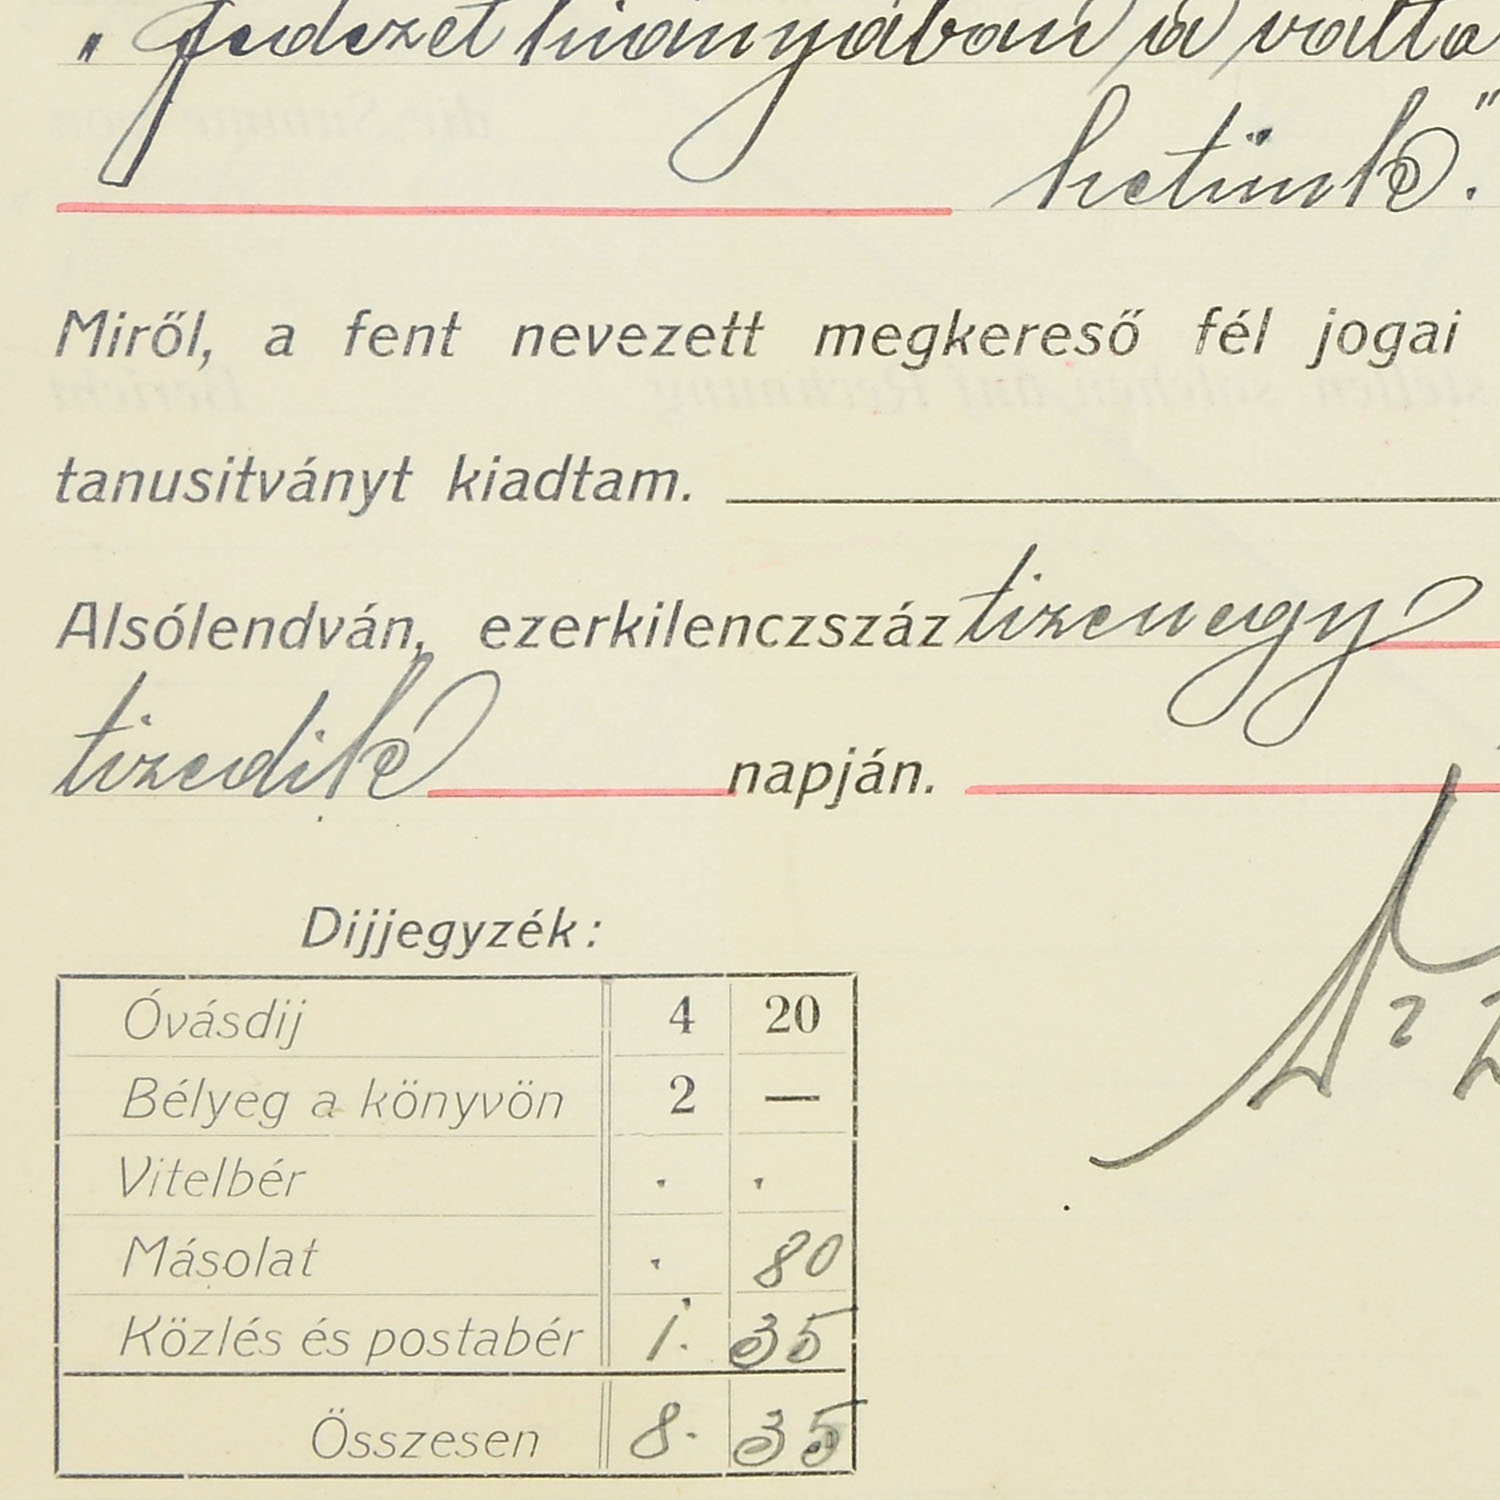 „ fedezet hiányában a válto
hetünk."
Miről, a fent nevezett megkereső fél jogai
tanusitványt kiadtam.
Alsólendván, ezerkilenczszáz tizenegy
tizedik napján.
Dijjegyzék:
Óvásdij 4 20
Bélyeg a könyvön 2 —
Vitelbér . .
Másolat . 80
Közlés és postabér 1. 35
Összesen 8. 35